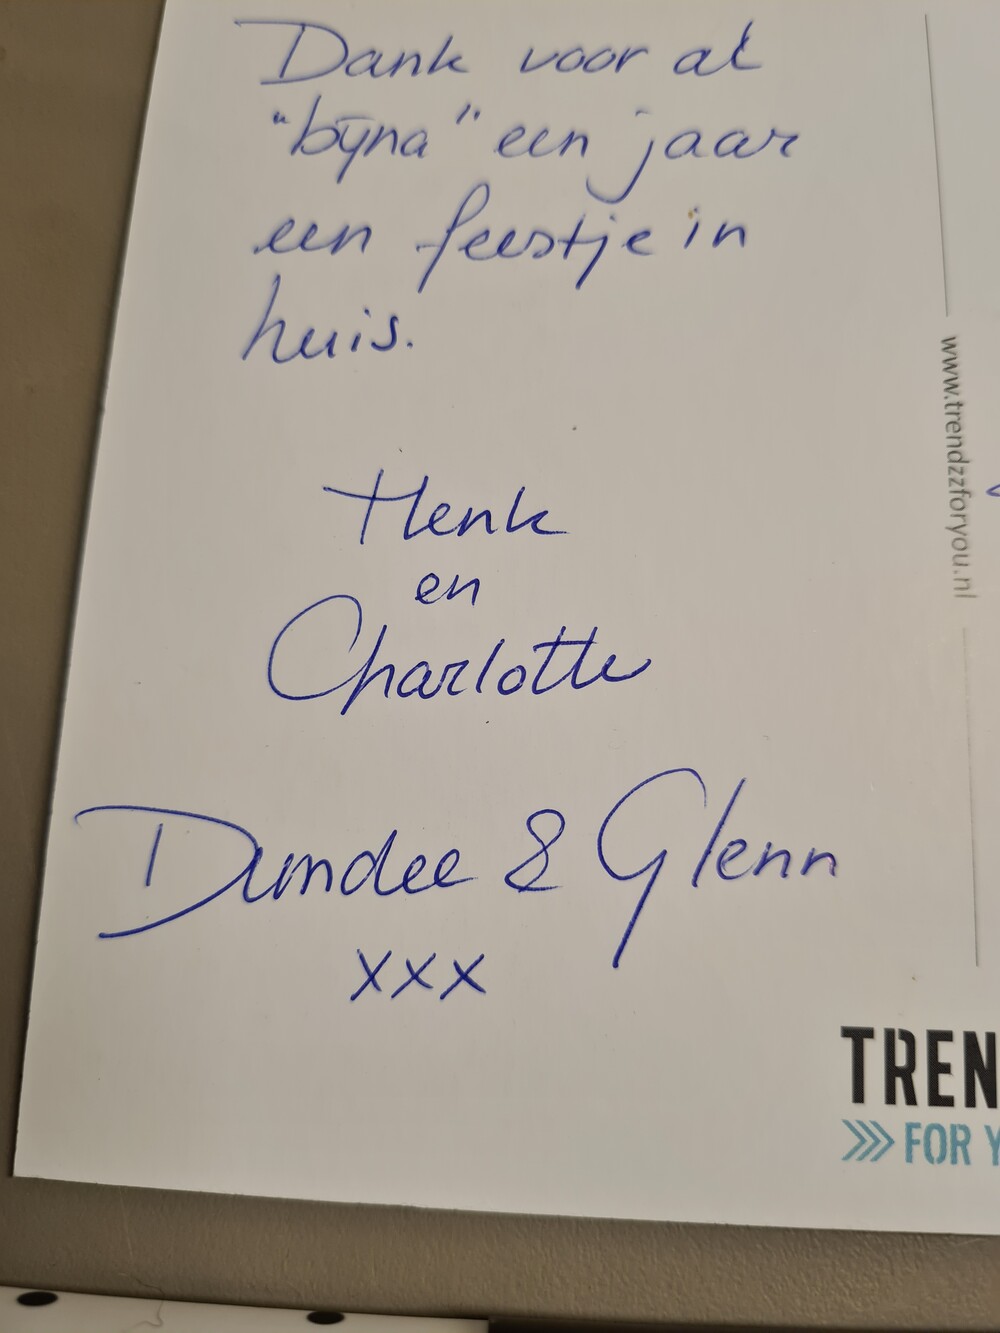 Dank voor al
"bijna" een jaar
een feestje in
huis.
Henk
en
Charlotte
Dundee & Glenn
xxx
www.trendzzforyou.nl
TREN
>>> FOR Y